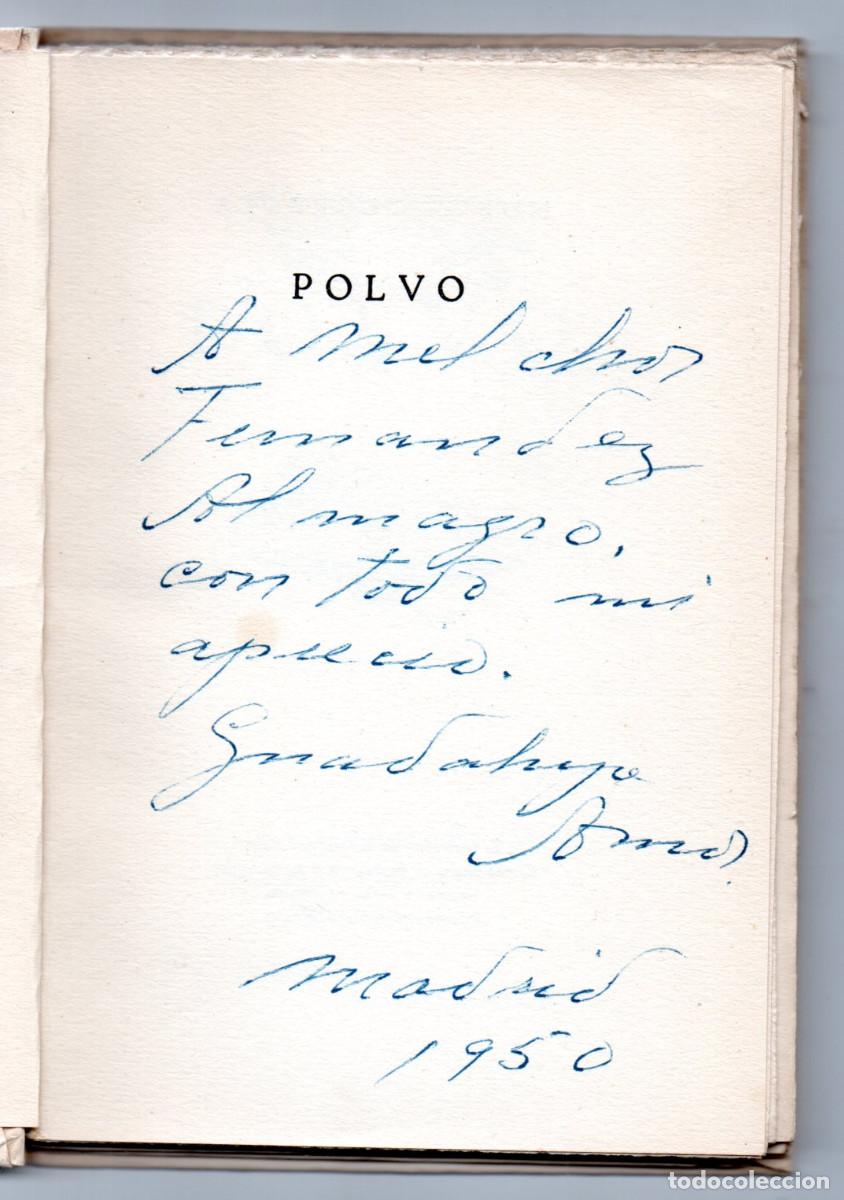 POLVO
A Melchor
Fernandez
Almagro,
con todo mi
aprecio.
Guadalupe
Amor.
Madrid
1950
todocoleccion
todocoleccion.net